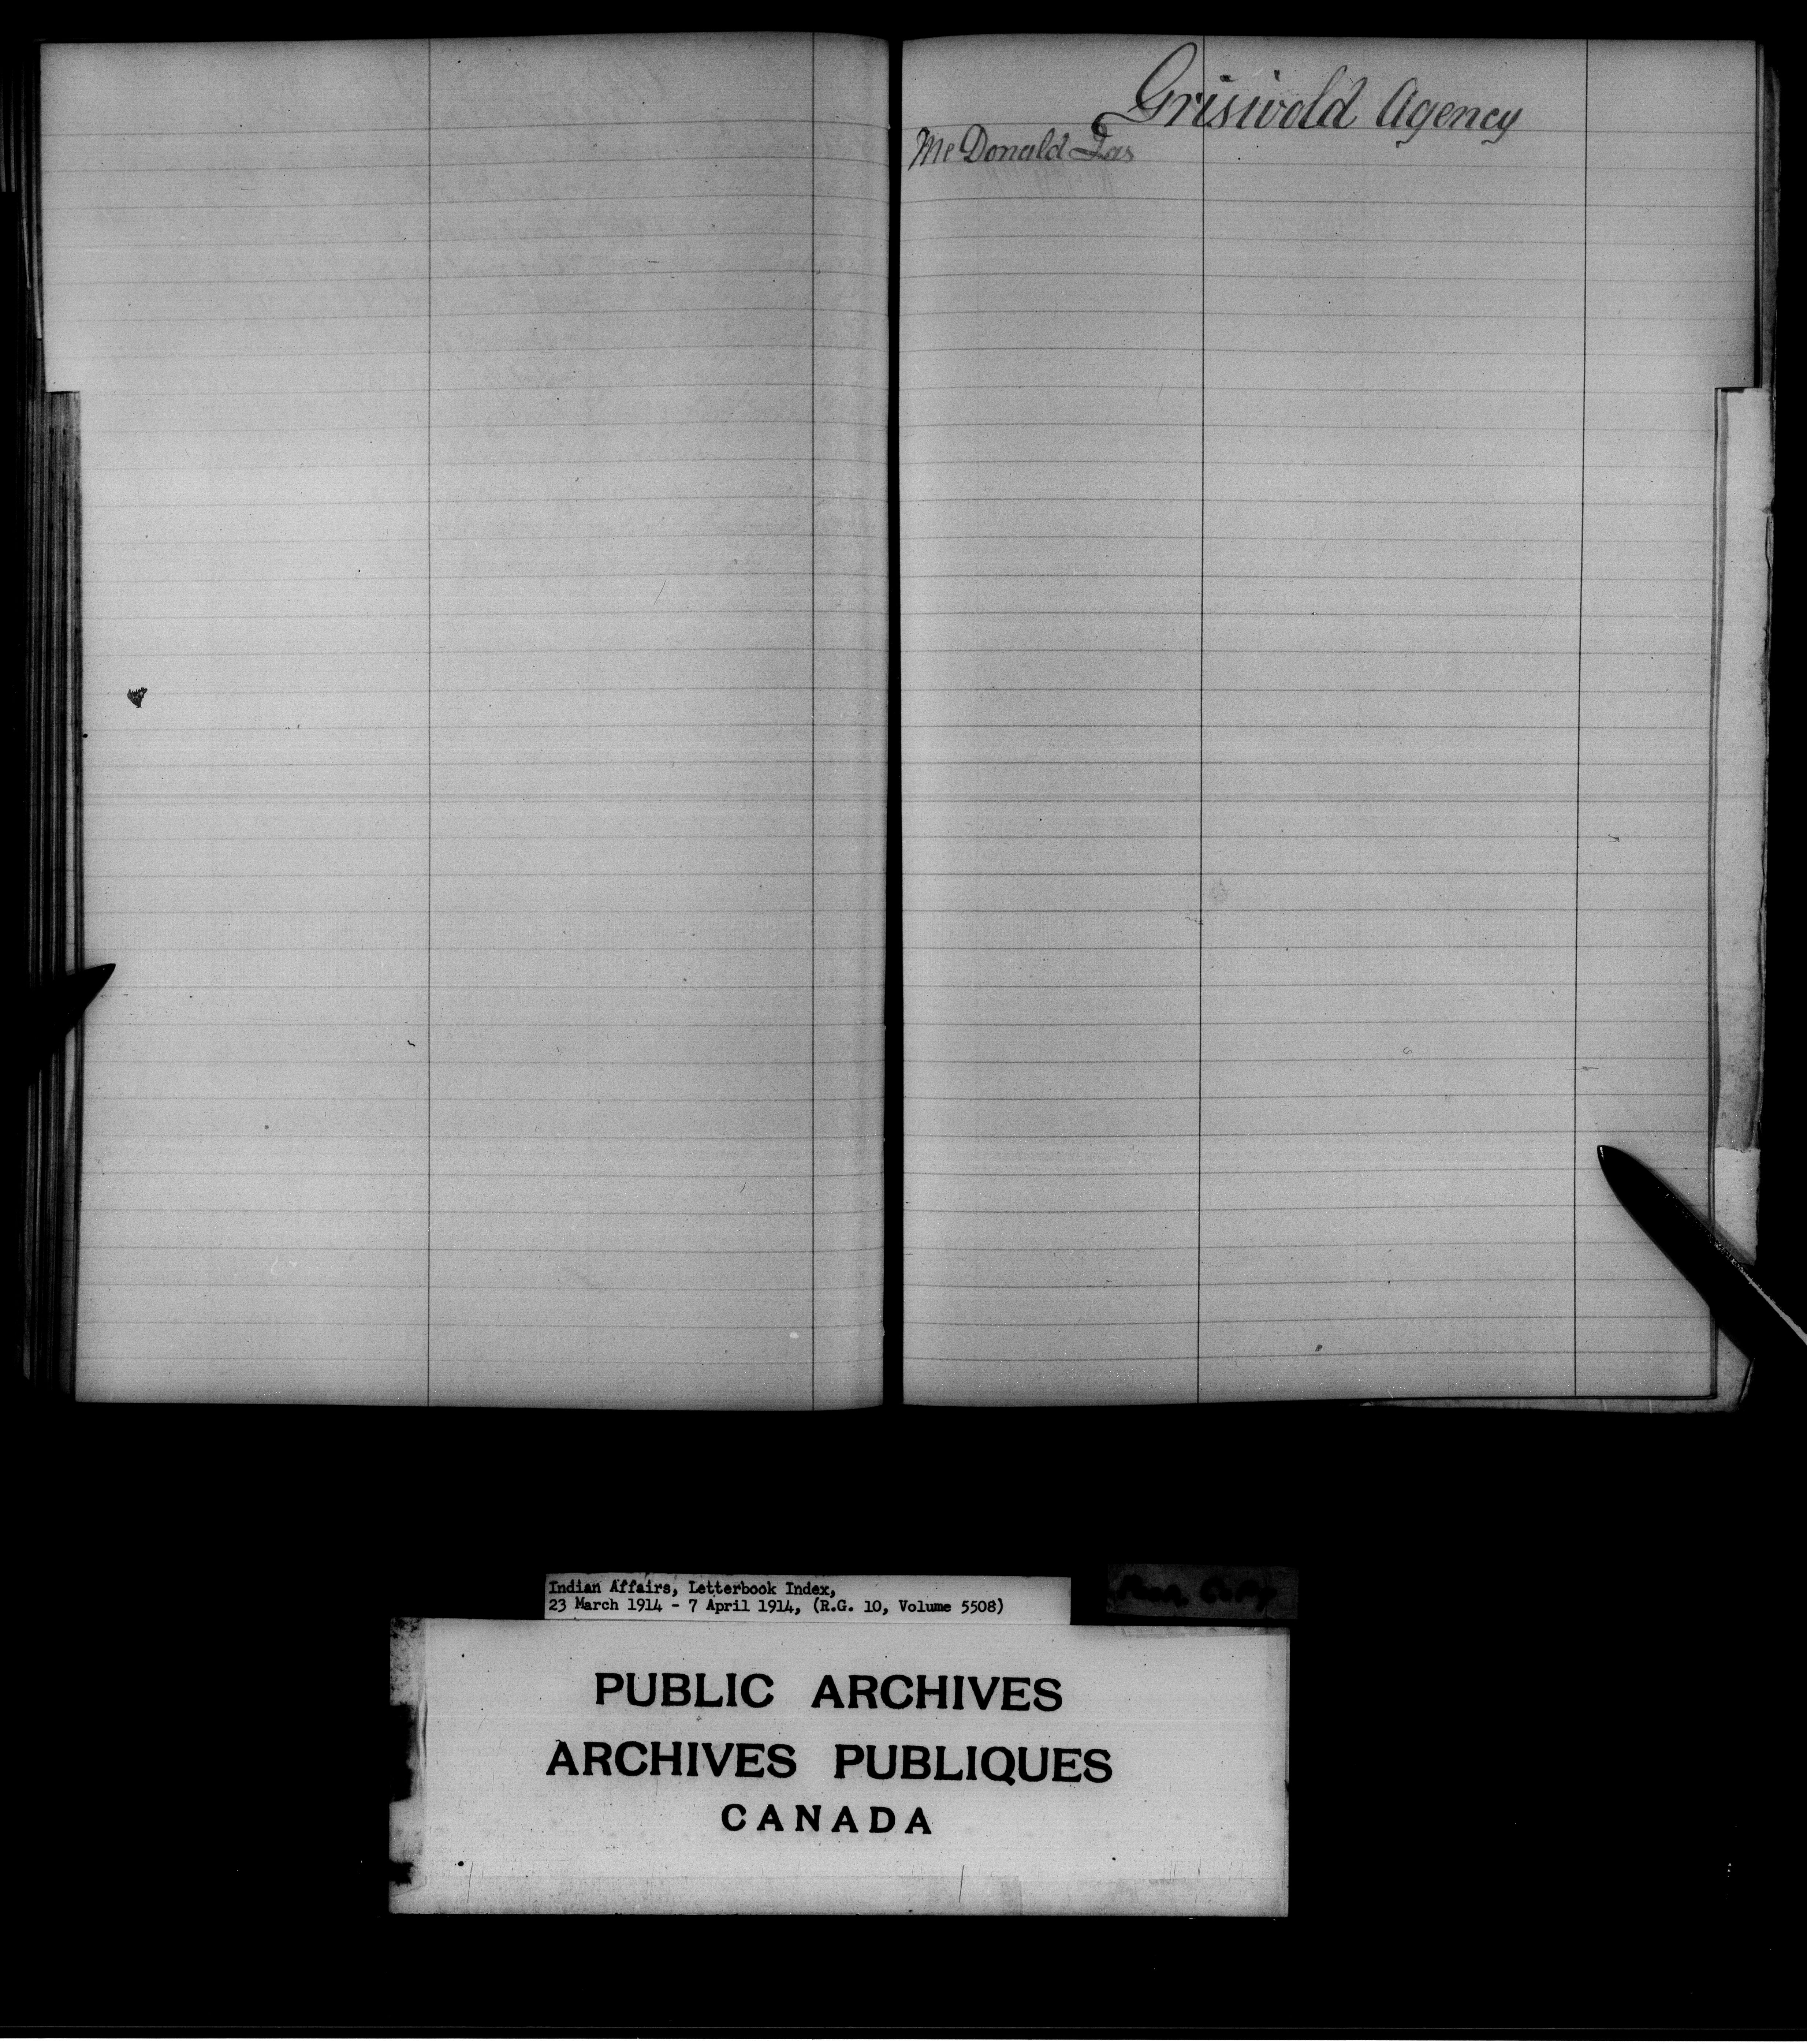 Griswold Agency
McDonald Jas
Indian Affairs, Letterbook Index,
23 March 1914 - 7 April 1914, (R.G. 10, Volume 5508)
PUBLIC ARCHIVES
ARCHIVES PUBLIQUES
CANADA